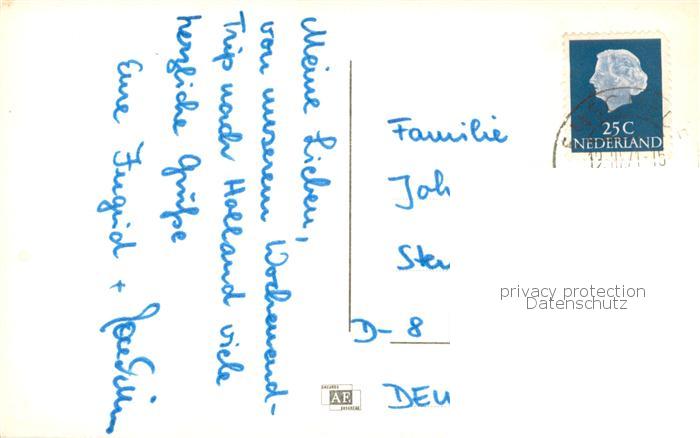 Meine Lieben,
von unserem Wochenend-
Trip nach Holland viele
herzliche Grüße
Eure Ingrid +
Familie
Joh
Ste
D- 8
DEU
25 C
NEDERLAND
privacy protection
Datenschutz
AF